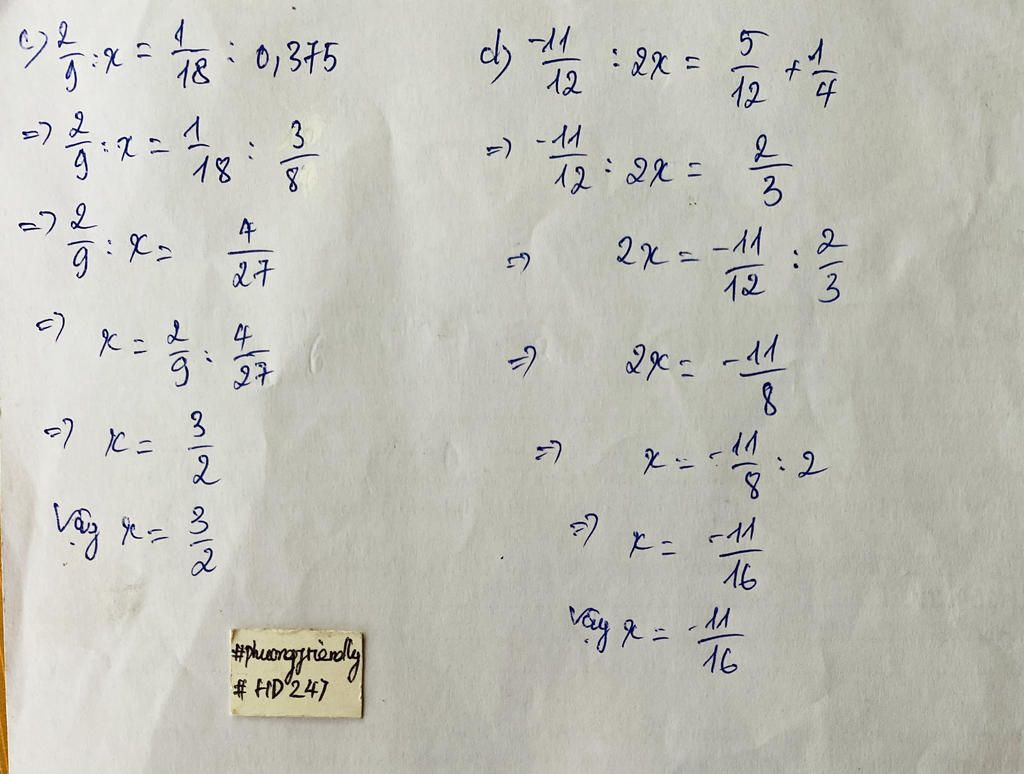 c) 2/9 : x = 1/18 : 0,375
=> 2/9 : x = 1/18 : 3/8
=> 2/9 : x = 4/27
=> x = 2/9 : 4/27
=> x = 3/2
Vậy x = 3/2
d) -11/12 : 2x = 5/12 + 1/4
=> -11/12 : 2x = 2/3
=> 2x = -11/12 : 2/3
=> 2x = -11/8
=> x = -11/8 : 2
=> x = -11/16
Vậy x = -11/16
#phuongfriendly
# HD 247